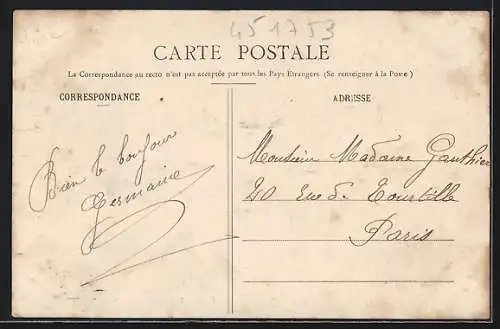 451753
CARTE POSTALE
La Correspondance au recto n'est pas acceptée par tous les Pays Etrangers (Se renseigner à la Poste)
CORRESPONDANCE
ADRESSE
Bien le bonjour
Germaine
Monsieur Madame Gauthier
20 rue de Tourtille
Paris